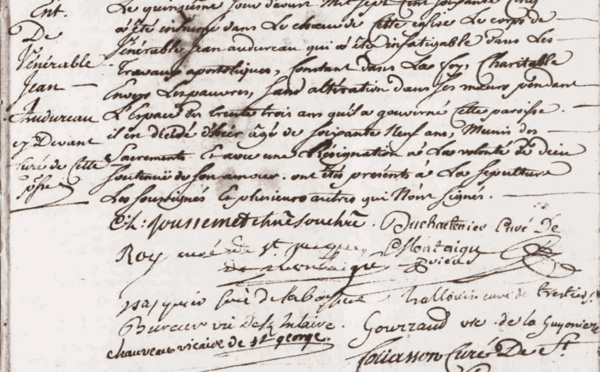 Ent.
De
Vénérable
Jean
Audureau
cy Devant
curé de Cette
Le quinzième jour d'avril mil sept cent soixante cinq
a été inhumé dans le chœur de cette église Le corps de
Vénérable Jean audureau qui a été infatigable Dans Les
Travaux apostoliques, Constant dans La foy, Charitable
Envers Les pauvres, sans altération dans ses mœurs pendant
L'Espace des trente trois ans qu'il a gouverné cette paroisse.
il en décédé d'hier âgé de soixante Neuf ans, Munis des
Sacrements Et avec une Résignation à La volonté de dieu
soutenüe de son amour. ont étés présents à La sepulture
Les soussignés et plusieurs autres qui N'ont signés.
Ch: Joussemet
Curé De
Roy curé de St.
Montaigu
curé de
vic de St hilaire. Gourraud vre. de La Guyonniere
chauveau vicaire de st george.
Curé De St.